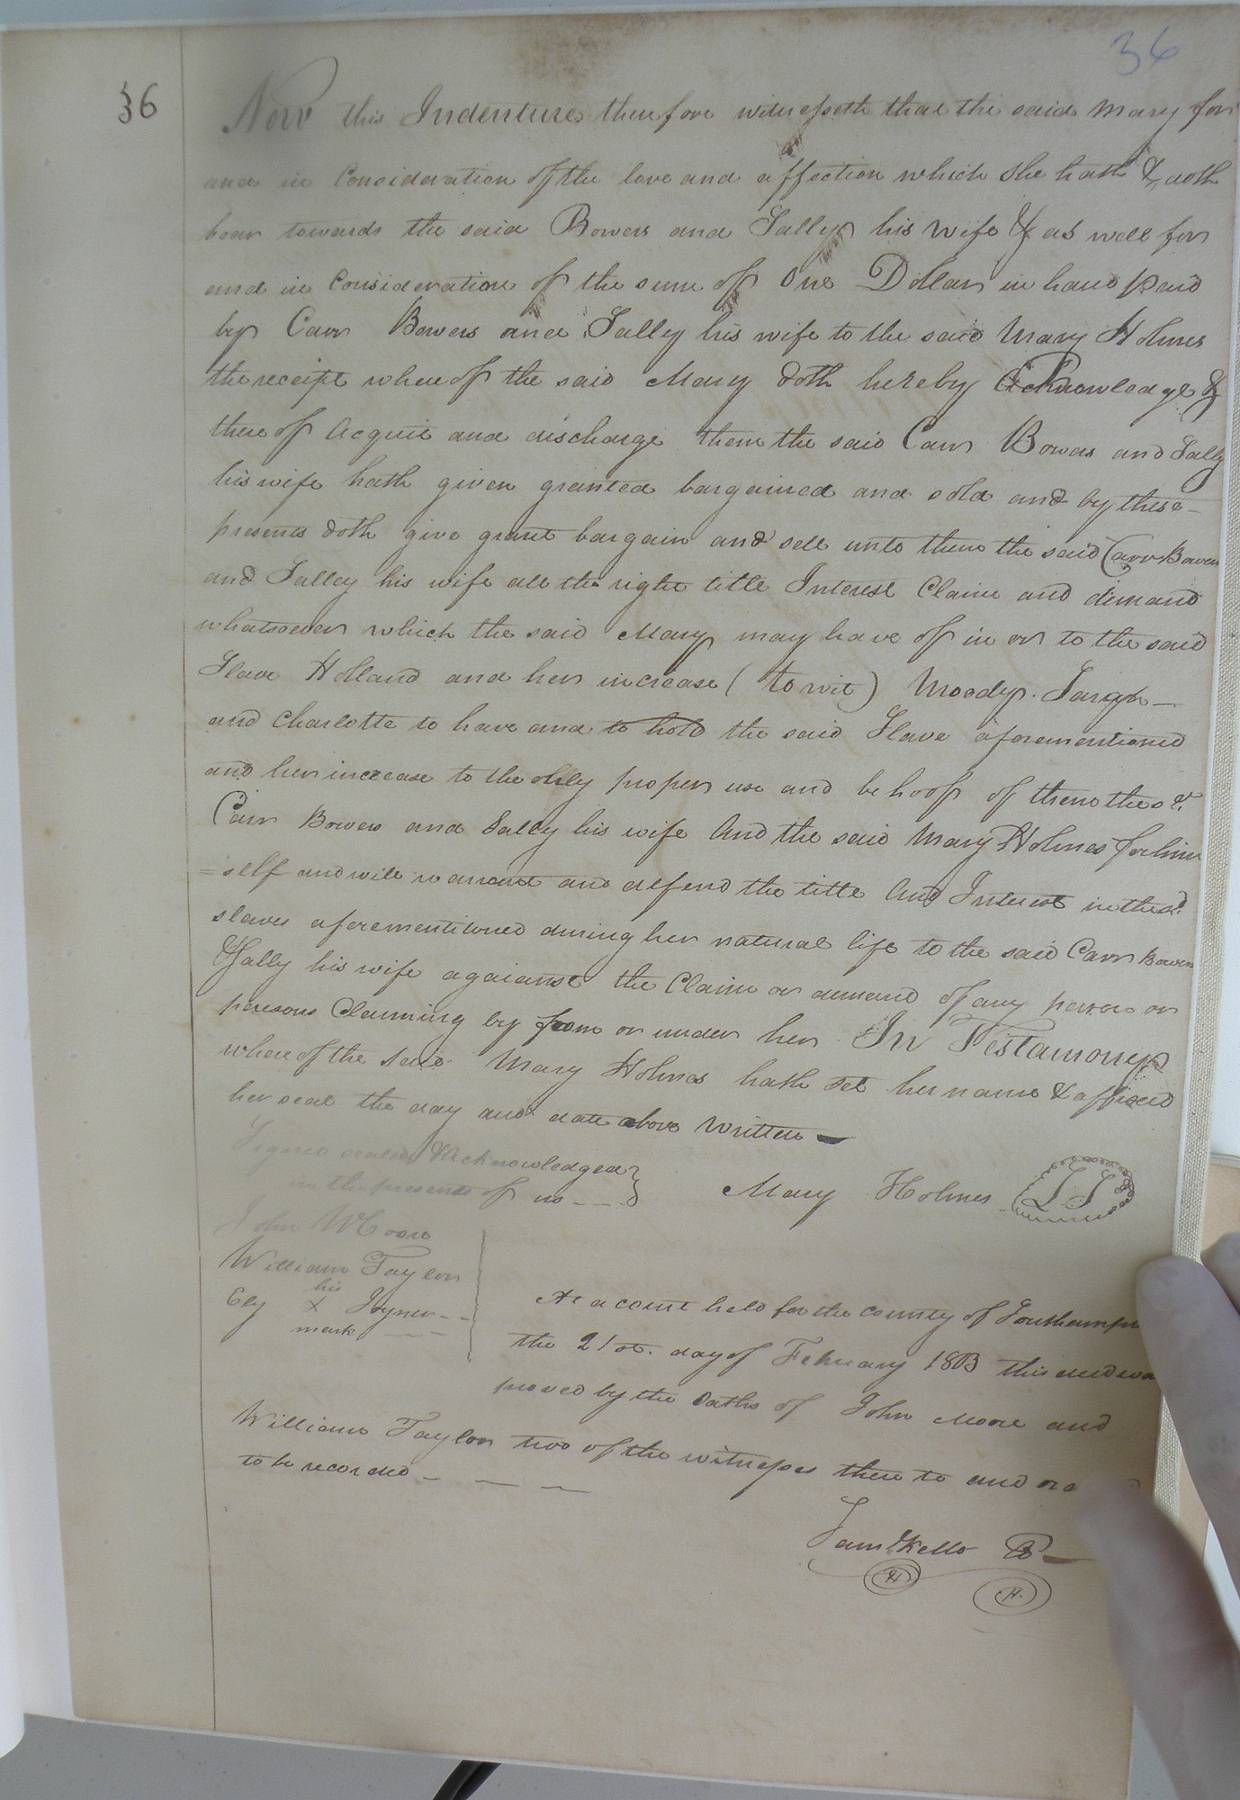 36
36
Now this Indenture therefore witnesseth that the said Mary for
and in Consideration of the love and affection which she hath & doth
bear towards the said Bowers and Sally his wife & as well for
and in Consideration of the sum of One Dollar in hand paid
by Carr Bowers and Sally his wife to the said Mary Holmes
the receipt whereof the said Mary doth hereby Acknowledge &
thereof Acquit and discharge them the said Carr Bowers and Sally
his wife hath given granted bargained and sold and by these
presents doth give grant bargain and sell unto them the said Carr Bowers
and Salley his wife all the right title Interest Claim and demand
whatsoever which the said Mary may have of in or to the said
Slave Holland and her increase (to wit) Moody.
and Charlotte to have and to hold the said Slave aforementioned
and her increase to the only proper use and behoof of them the sd.
Carr Bowers and Sally his wife And the said Mary Holmes for him
=self and will warrant and defend the title And Interest in the sd.
slaves aforementioned during her natural life to the said Carr Bowers
& Sally his wife againanst the Claim or demand of any person or
persons Claiming by from or under her In Testamony
whereof the said Mary Holmes hath set her name & affixed
her seal the day and date above Written
Signed sealed & Acknowledged
in the presents of us
Mary Holmes LS
John Moore
William Taylor
his
Ely X Joyner
mark
At a court held for the county of Southampton
the 21st. day of February 1803 this deed was
proved by the oaths of John Moore and
William Taylor two of the witnesses thereto and
to be recorded
Saml Kello